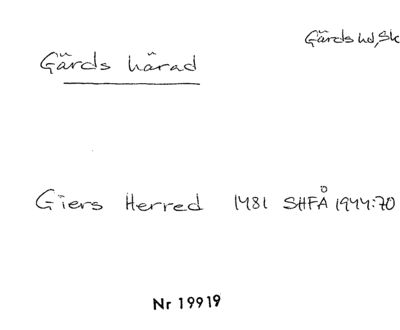 Gärds hd, Sk
Gärds härad
Giers Herred 1481 SHFÅ 1944:70
Nr 19919